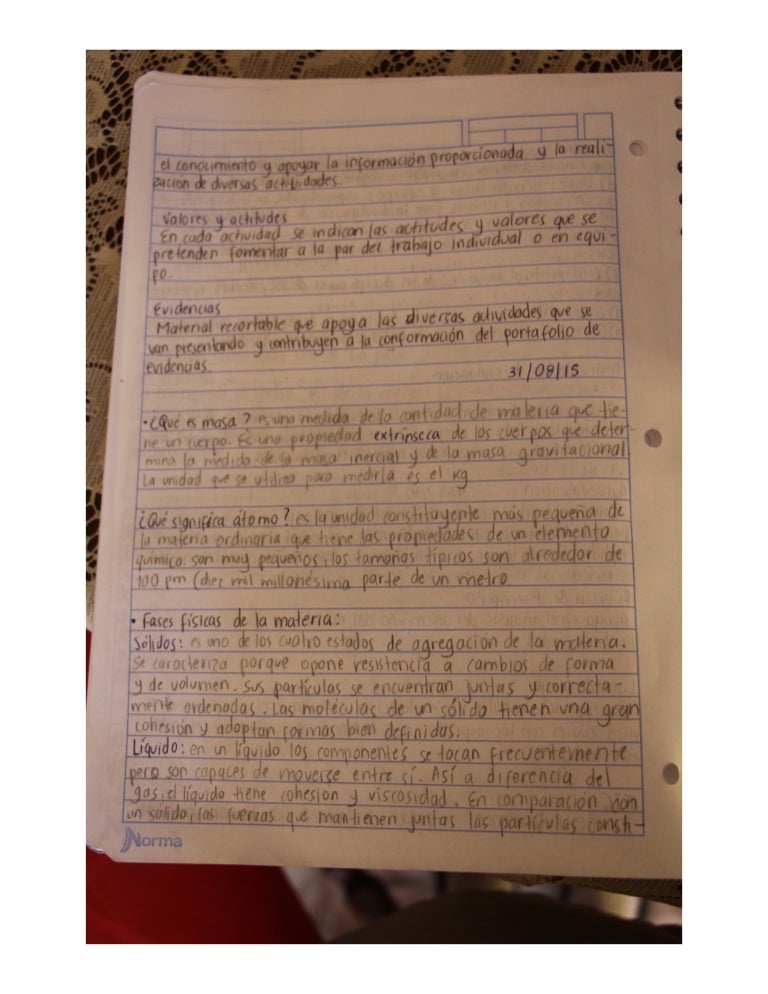 el conocimiento y apoyar la información proporcionada y la reali-
zación de diversas actividades.
Valores y actitudes
En cada actividad se indican las actitudes y valores que se
pretenden fomentar a la par del trabajo individual o en equi-
po.
Evidencias
Material recortable que apoya las diversas actividades que se
van presentando y contribuyen a la conformación del portafolio de
evidencias.
31/08/15
• ¿Qué es masa? es una medida de la cantidad de materia que tie-
ne un cuerpo. Es una propiedad extrínseca de los cuerpos que deter-
mina la medida de la masa inercial y de la masa gravitacional
La unidad que se utiliza para medirla es el kg
¿Qué significa átomo? es la unidad constituyente más pequeña de
la materia ordinaria que tiene las propiedades de un elemento
químico. son muy pequeños, los tamaños típicos son alrededor de
100 pm (diez mil millonésima parte de un metro
• Fases físicas de la materia:
Sólidos: es uno de los cuatro estados de agregación de la materia.
Se caracteriza porque opone resistencia a cambios de forma
y de volumen. Sus partículas se encuentran juntas y correcta-
mente ordenadas. Las moléculas de un sólido tienen una gran
cohesión y adoptan formas bien definidas.
Líquido: en un líquido los componentes se tocan frecuentemente
pero son capaces de moverse entre sí. Así a diferencia del
gas, el líquido tiene cohesion y viscosidad. En comparación con
un sólido, las fuerzas que mantienen juntas las partículas consti-
Norma